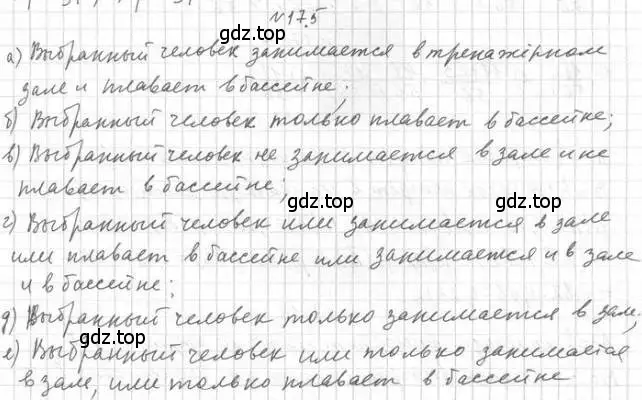 №17.5
а) Выбранный человек занимается в тренажёрном
зале и плавает в бассейне;
gdz.top
gdz.top
б) Выбранный человек только плавает в бассейне;
gdz.top
в) Выбранный человек не занимается в зале и не
плавает в бассейне;
gdz.top
г) Выбранный человек или занимается в зале
gdz.top
или плавает в бассейне или занимается и в зале
и в бассейне;
gdz.top
д) Выбранный человек только занимается в зале,
gdz.top
е) Выбранный человек или только занимается
в зале, или только плавает в бассейне
gdz.top